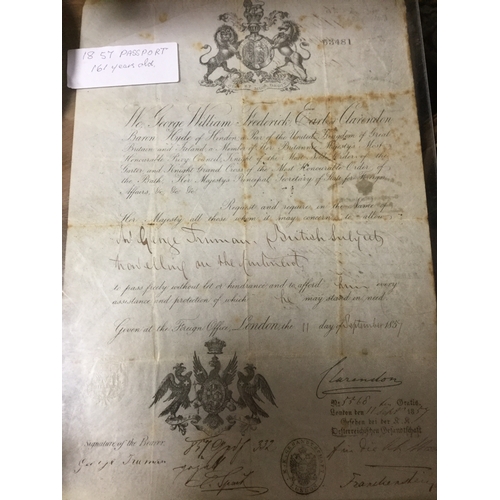 18 57 PASSPORT
161 years old
63481
We George William Frederick Earl of Clarendon
Baron Hyde of Hindon a Peer of the United Kingdom of Great
Britain and Ireland a Member of Her Britannic Majesty's Most
Honourable Privy Council, Knight of the Most Noble Order of the
Garter and Knight Grand Cross of the Most Honourable Order of
the Bath Her Majesty's Principal Secretary of State for Foreign
Affairs, &c &c &c
Request and require in the Name of
Her Majesty all those whom it may concern to allow
George Truman. British Subject
travelling on the Continent
to pass freely without let or hindrance and to afford him every
assistance and protection of which he may stand in need.
Given at the Foreign Office, London the 11 day of September 1857
Clarendon
London 11 Sept 1857
Gesehen bei der K. K.
Oesterreichischen Gesandtschaft
Signature of the Bearer.
George Truman